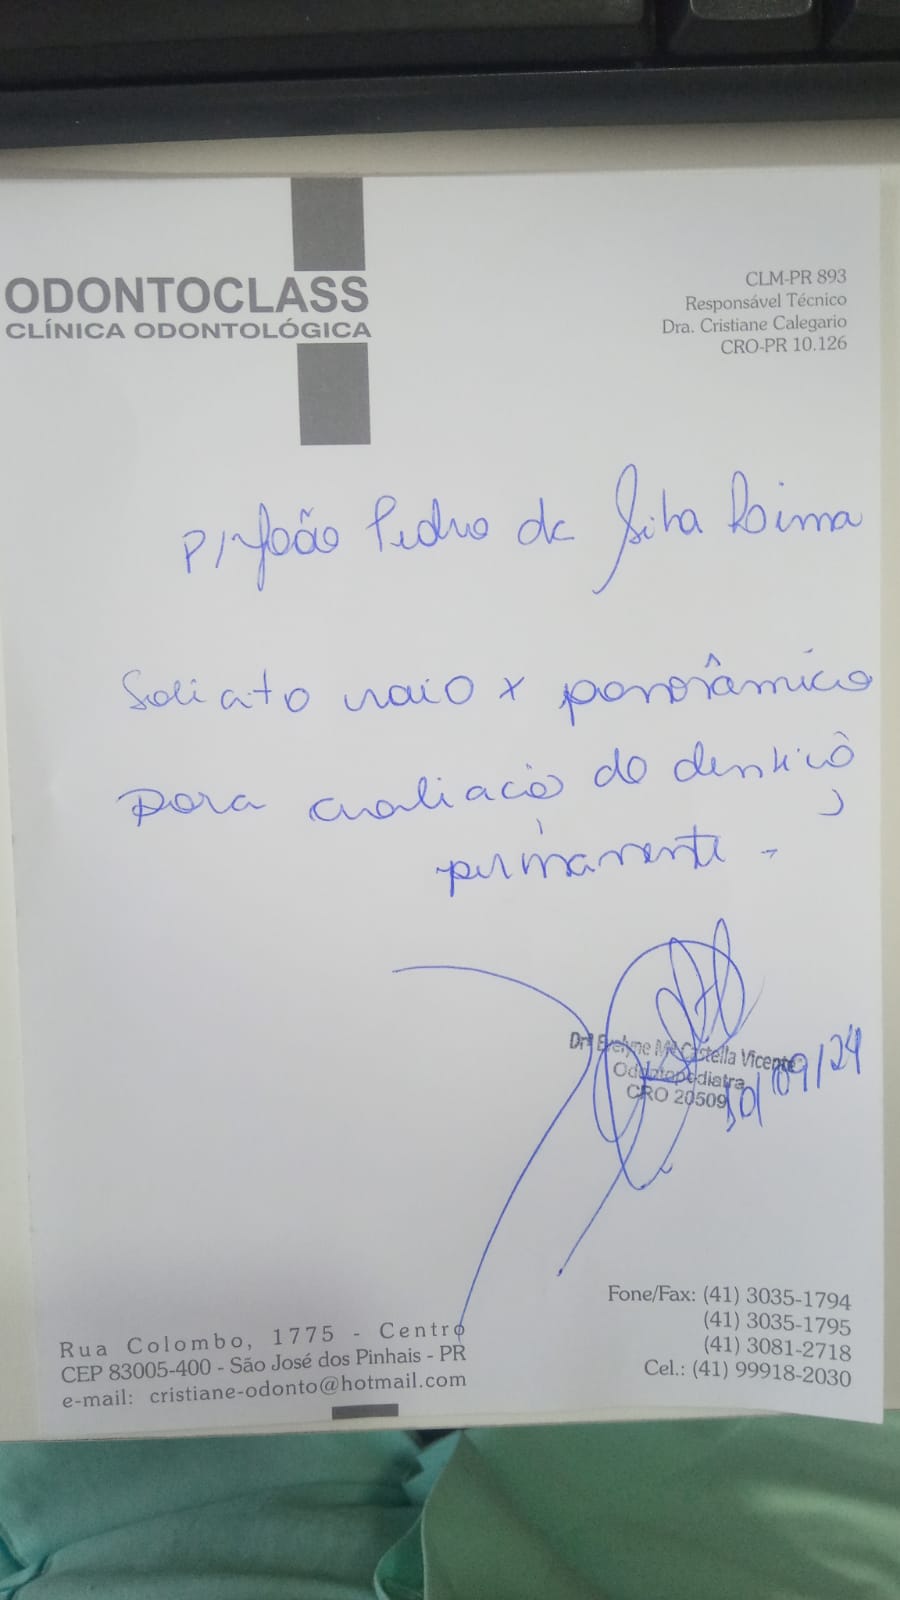 ODONTOCLASS
CLÍNICA ODONTOLÓGICA
CLM-PR 893
Responsável Técnico
Dra. Cristiane Calegario
CRO-PR 10.126
P/ João Pedro da Silva
Solicito raio x panorâmico
para avaliação da dentição
permanente -
Drª Evelyne Mª Castella Vicente
Odontopediatra
CRO 20509
/09/24
Rua Colombo, 1775 - Centro
CEP 83005-400 - São José dos Pinhais - PR
e-mail: cristiane-odonto@hotmail.com
Fone/Fax: (41) 3035-1794
(41) 3035-1795
(41) 3081-2718
Cel.: (41) 99918-2030